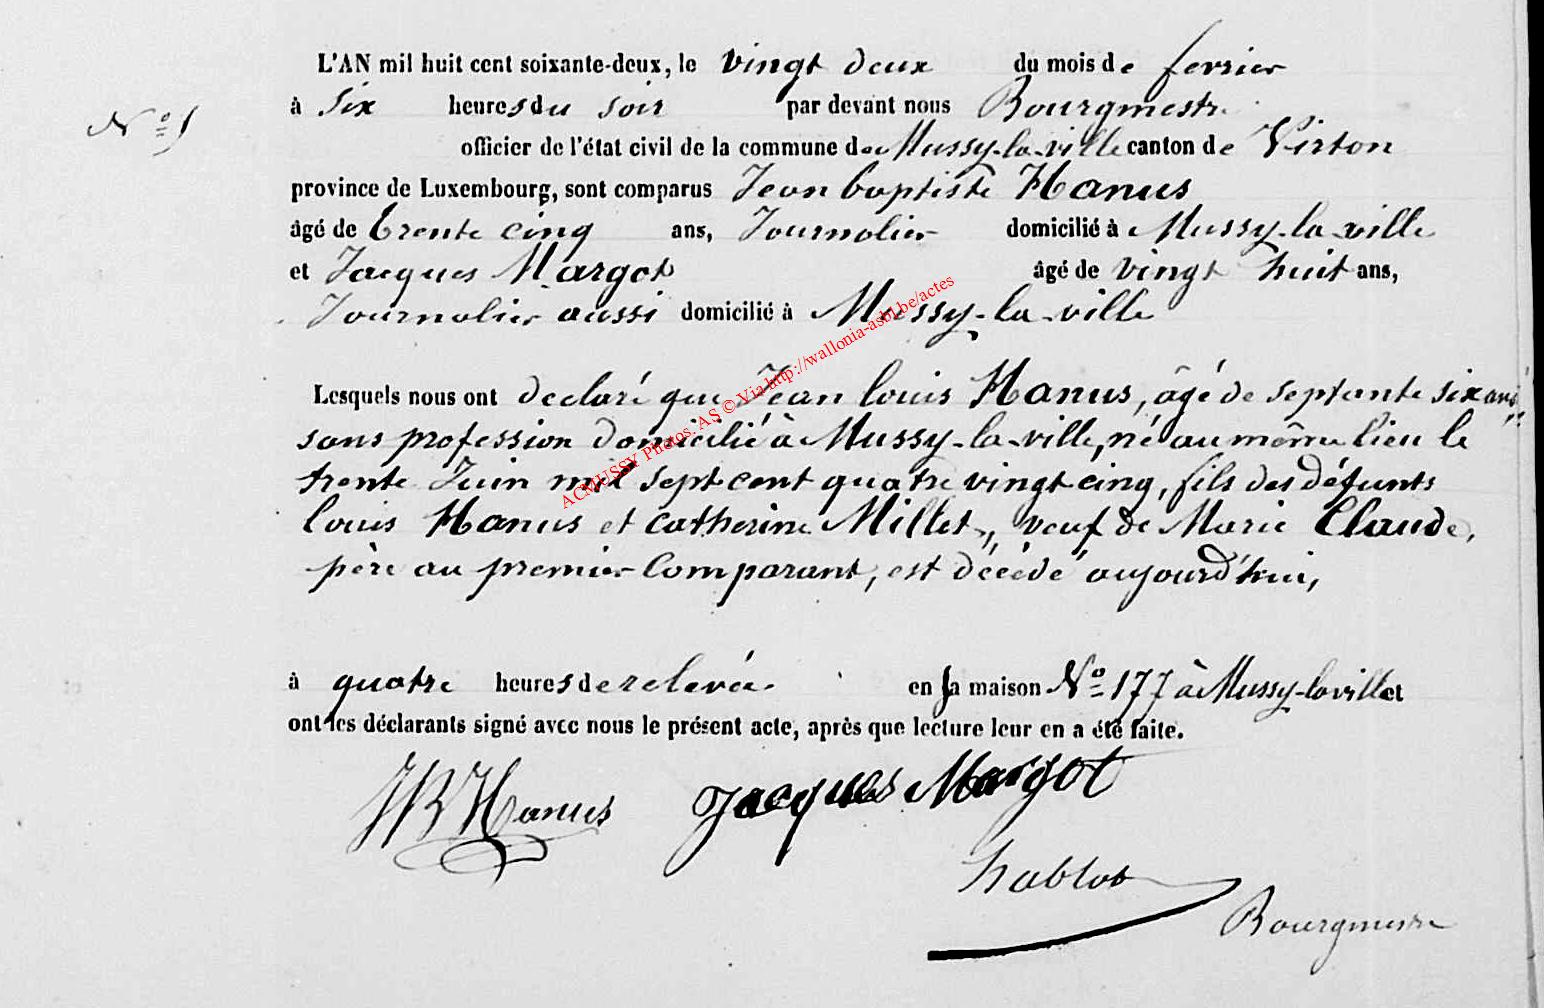 L'AN mil huit cent soixante-deux, le vingt deux du mois de fevrier
à six heures du soir par devant nous Bourgmestre
N°
officier de l'état civil de la commune de Mussy-la-ville canton de Virton
province de Luxembourg, sont comparus Jean baptiste Hanus
âgé de trente cinq ans, Journalier domicilié à Mussy-la-ville
et Jacques Margot âgé de vingt huit ans,
Journalier aussi domicilié à Mussy-la-ville
Lesquels nous ont declaré que Jean louis Hanus, âgé de septante six ans,
sans profession domicilié à Mussy-la-ville, né au même lieu le
trente Juin mil sept cent quatre vingt cinq, fils des défunts
louis Hanus et catherine Millet, veuf de Marie Claude,
père au premier Comparant, est décédé aujourd'hui,
à quatre heures de relevée en sa maison N° 177 à Mussy-laville et
ont les déclarants signé avec nous le présent acte, après que lecture leur en a été faite.
JB Hanus Jacques Margot
Bourgmestre
ACMUSSY Photos: AS © Via http://wallonia-asbl.be/actes